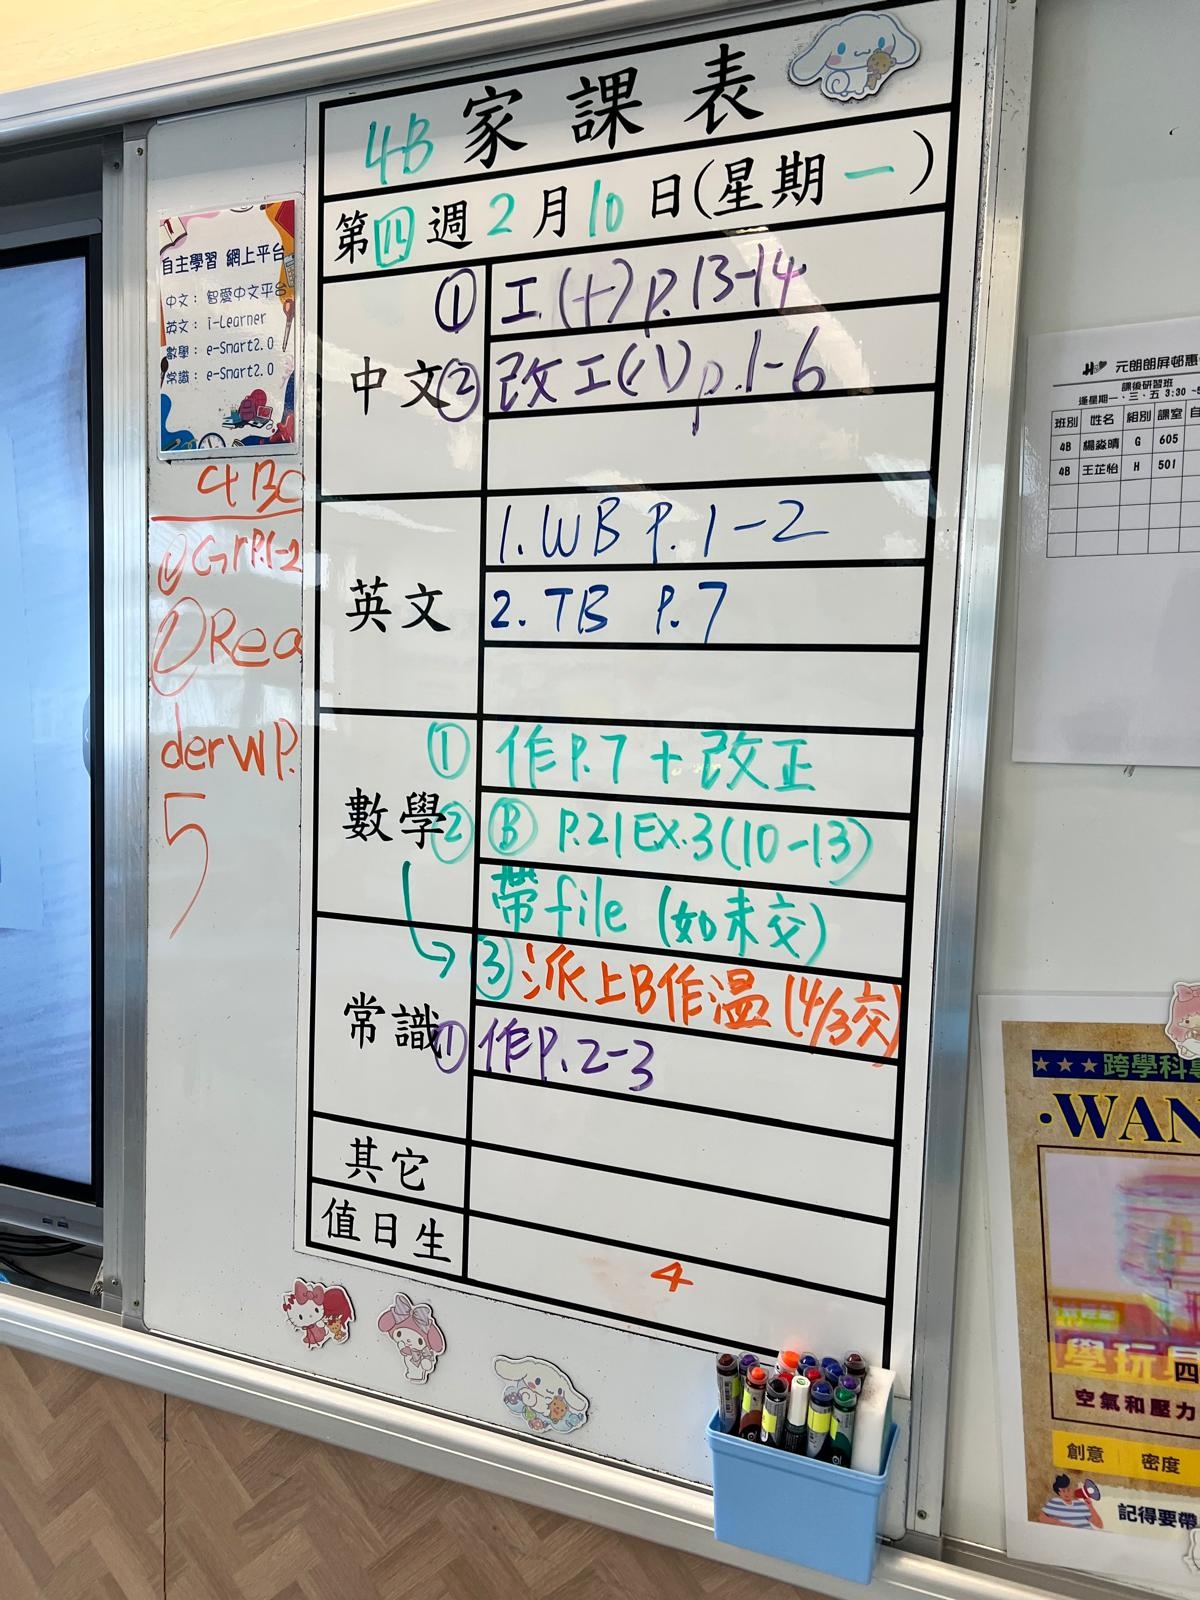 4B 家課表
第四週 2月10日(星期一)
中文
① 工.(十) p.13-14
② 改工(八) p.1-6
英文
1. WB P.1-2
2. TB P.7
數學
① 作P.7+改正
② Ⓑ P.21 EX.3(10-13)
帶file (如未交)
③ 派上B作溫 (4/3交)
常識
① 作P.2-3
其它
值日生
4
自主學習 網上平台
中文：智愛中文平台
英文：i-Learner
數學：e-Smart2.0
常識：e-Smart2.0
4BC
① Gr P.1-2
② Rea
der W P.
5
元朗朗屏邨惠
課後研習班
逢星期一、三、五 3:30
班別 姓名 組別 課室 自
4B 楊淼晴 G 605
4B 王芷怡 H 501
跨學科
·WAN
學玩
四
空氣和壓力
創意 密度
記得要帶